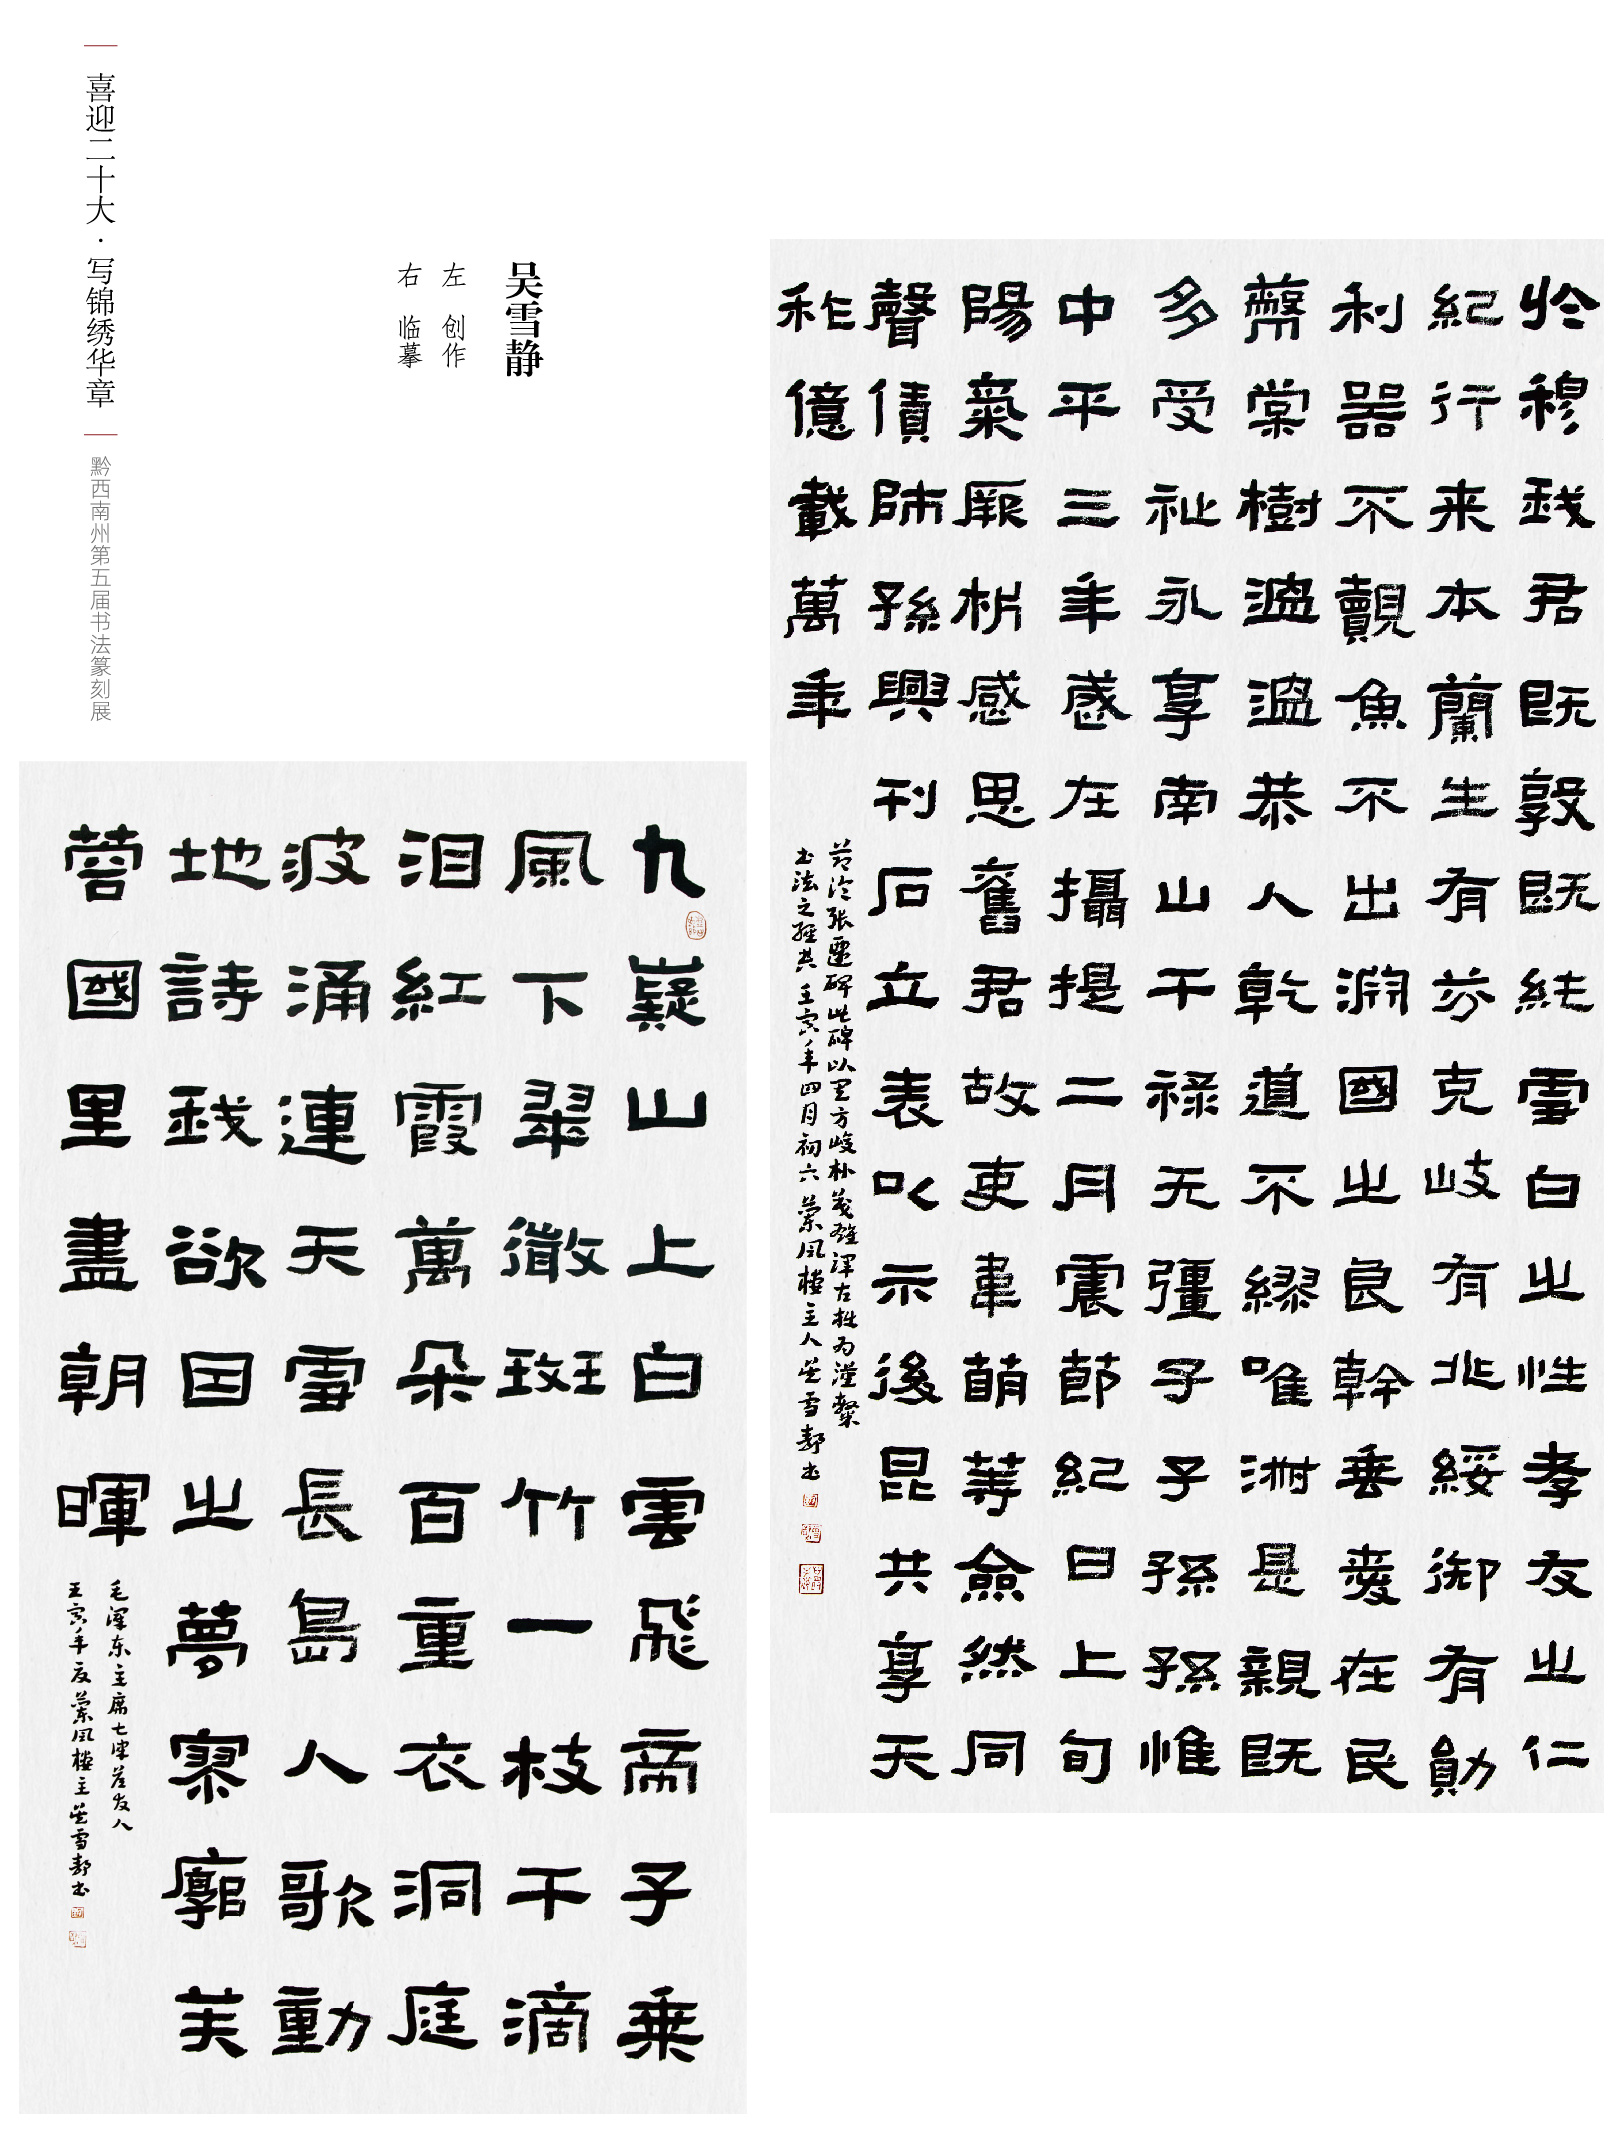 喜迎二十大·写锦绣华章
黔西南州第五届书法篆刻展
吴雪静
左 创作
右 临摹
於穆我君既敦既純雪白之性孝友之仁
紀行来本蘭生有芬克岐有兆綏御有勛
利器不覿魚不出渊國之良幹垂愛在民
棠樹温温恭人乾道不繆唯淑是親既
多受祉永享南山干禄无疆子子孫孫惟
中平三年感在攝提二月震節紀日上旬
陽氣厥析感思舊君故吏韋萌等僉然同
聲債師孫興刊石立表以示後昆共享天
祚億載萬年
节临張遷碑此碑以方峻朴茂雄浑古拙为
书法之經典壬寅年四月初六蘭风楼主人吴雪静书
九嶷山上白雲飛帝子乘
風下翠微斑竹一枝千滴
泪紅霞萬朵百重衣洞庭
波涌連天雪長島人歌動
地詩我欲因之夢寥廓芙
蓉國里盡朝暉
毛泽东主席七律答友人
壬寅年夏蘭风楼主吴雪静书